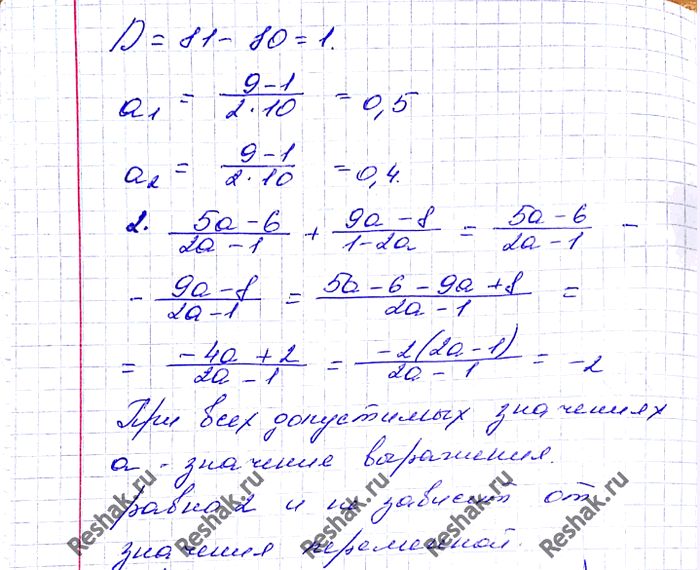 D = 81 - 80 = 1.
a₁ = (9-1)/(2·10) = 0,5
a₂ = (9-1)/(2·10) = 0,4.
2. (5a-6)/(2a-1) + (9a-8)/(1-2a) = (5a-6)/(2a-1) -
- (9a-8)/(2a-1) = (5a-6-9a+8)/(2a-1) =
= (-4a+2)/(2a-1) = (-2(2a-1))/(2a-1) = -2
При всех допустимых значениях
a - значение выражения.
равна 2 и не зависит от
значения переменной.
Reshak.ru Reshak.ru Reshak.ru Reshak.ru Reshak.ru